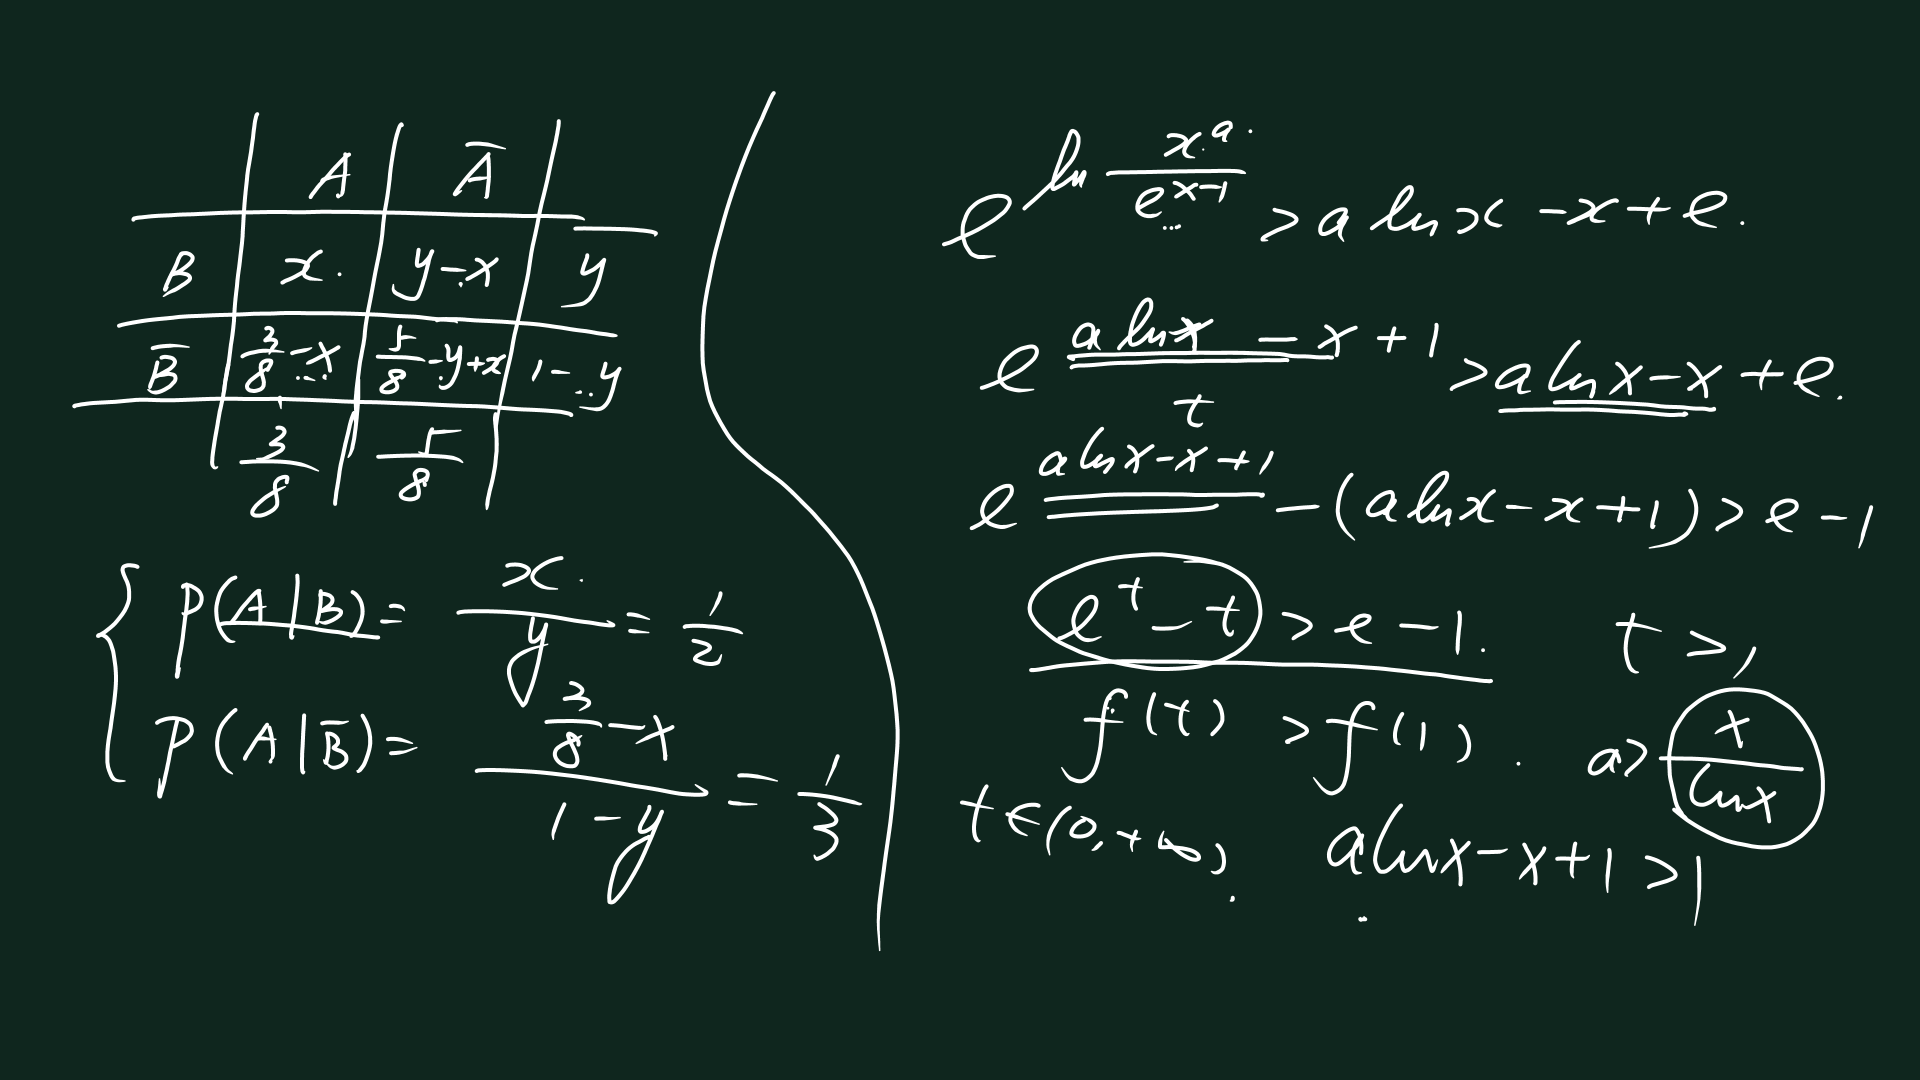 A Ā
B x. y-x y
B̄ 3/8-x 5/8-y+x 1-y
3/8 5/8
P(A|B)= x/y = 1/2
P(A|B̄)= (3/8-x)/(1-y) = 1/3
e^{ln x^a/e^{x-1}} > a ln x -x+e.
e^{a ln x - x + 1} > a ln x - x + e.
t
e^{a ln x - x + 1} - (a ln x - x + 1) > e - 1
e^t - t > e - 1. t > 1
f(t) > f(1). a > x/ln x
t∈(0,+∞). a ln x - x + 1 > 1